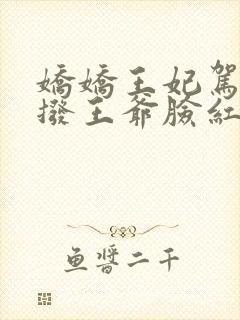 嬌嬌王妃駕
撥王爺臉紅
魚醬二千